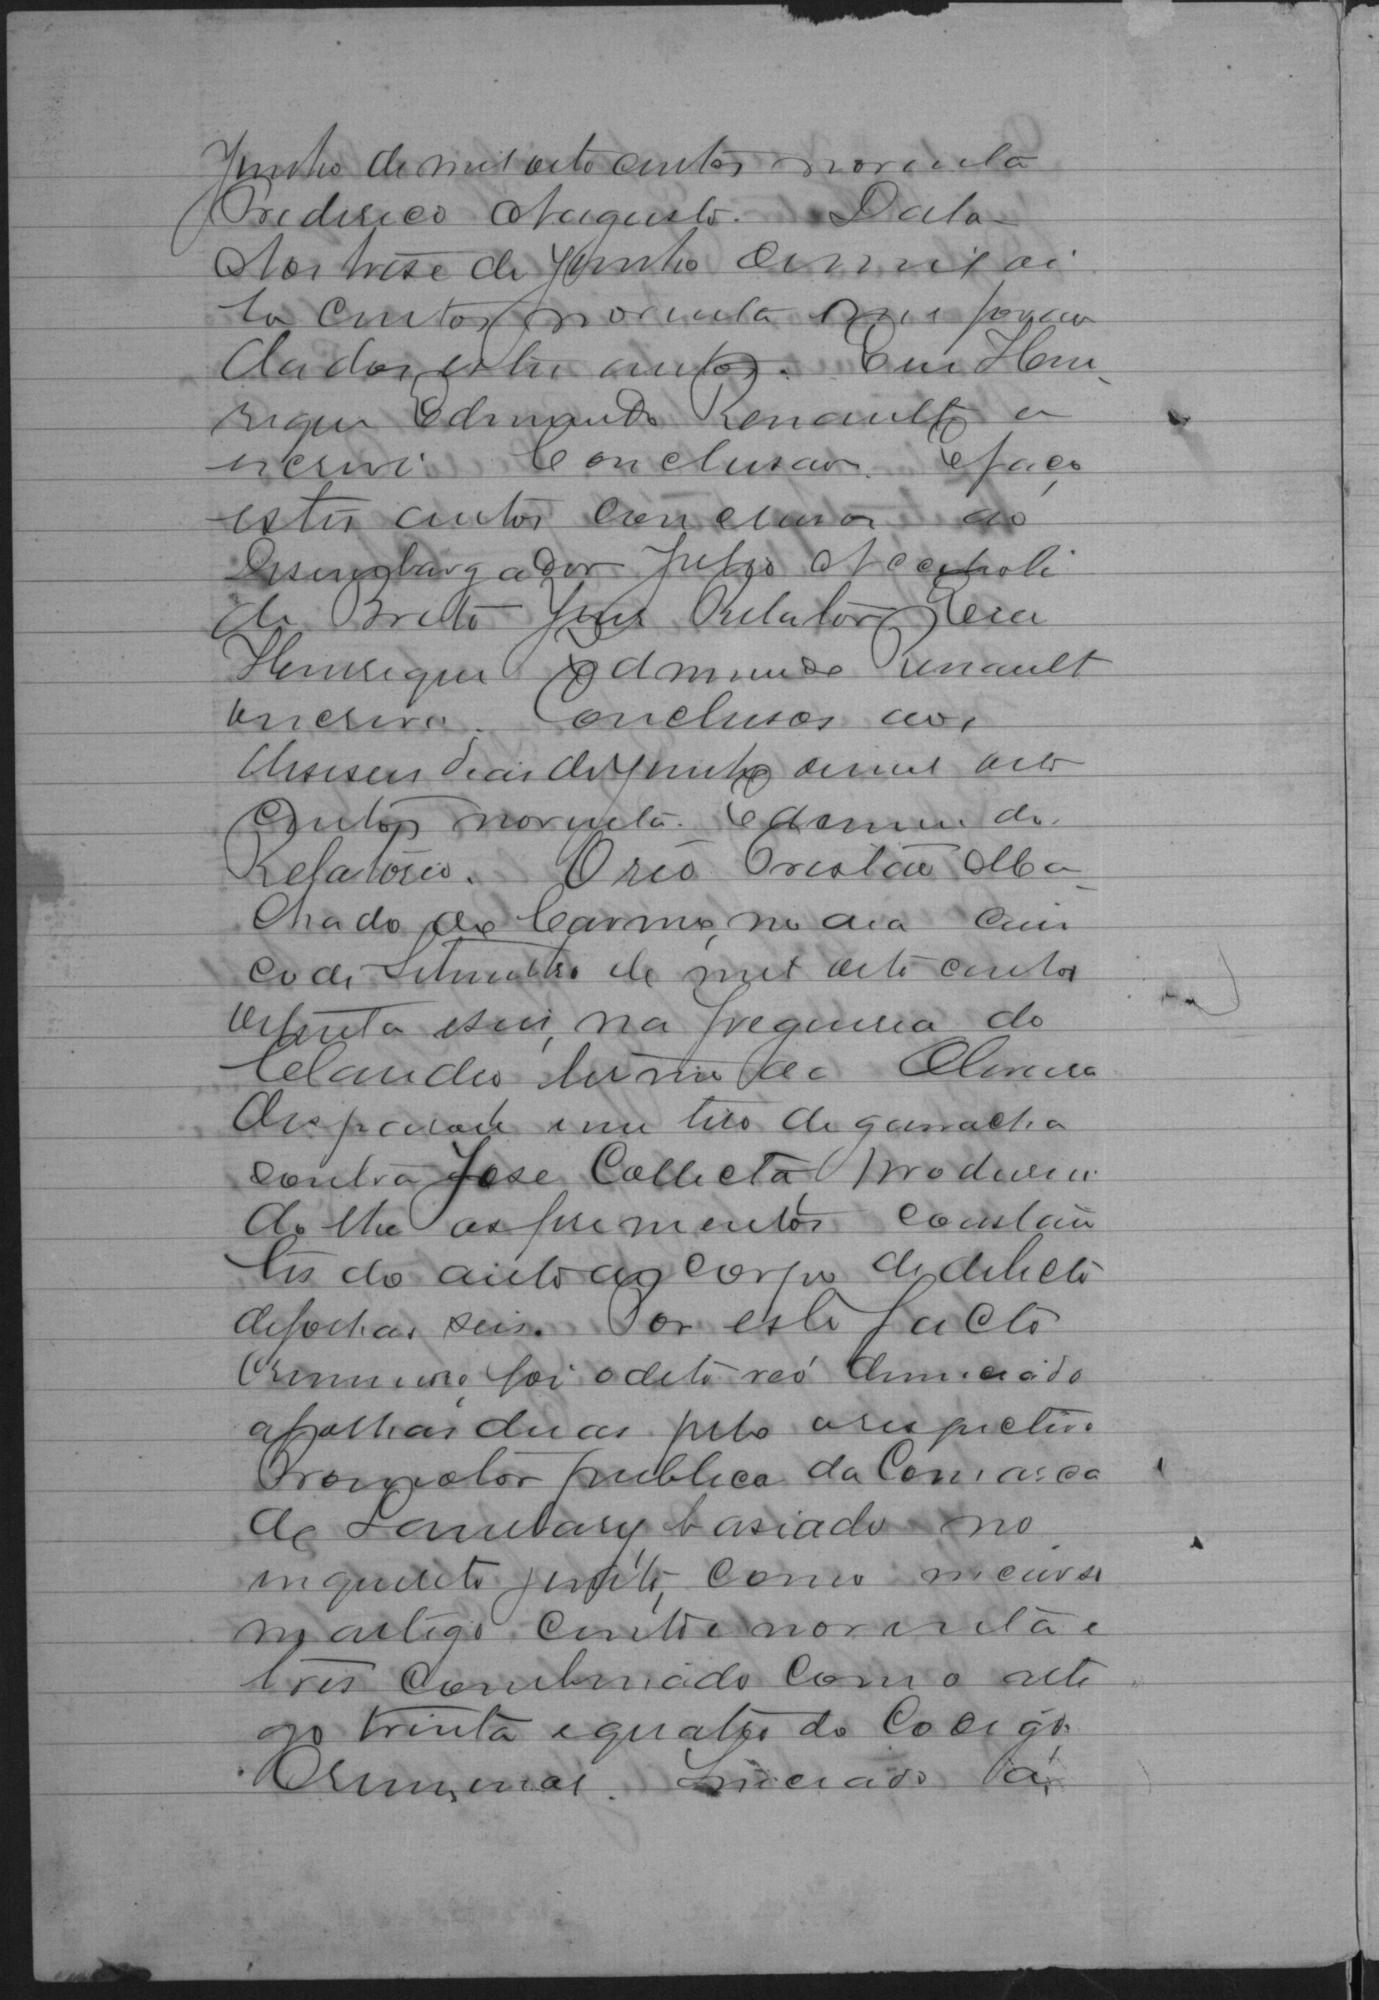 Junho de mil oito centos noventa
Frederico Augusto. Data
Aos trese de Junho de mil oi
to centos noventa me foram
dados estes autos. Eu Hen
rique Edmundo Renault o
escrevi. Conclusão. E faço
estes autos conclusos ao
Desembargador Julio Accioli
de Brito Juiz Relator Eu
Henrique Edmundo Renault
escrevi. Conclusos aos
deseseis dias de Junho de mil oito
centos noventa. Edmundo.
Relatorio. O reo Tristão Ma
chado do Carmo, no dia cin
co de Setembro de mil oito centos
oitenta e seis, na freguesia do
Claudio termo da Oliveira
disparou um tiro de garrucha
contra José Collecta, produsin
do lhe os ferimentos constan
tes do auto de corpo de delicto
de folhas seis. Por este facto
criminoso, foi o dito reo denunciado
a folhas duas pelo o respectivo
Promotor publico da Comarca
de baseado no
inquerito junto, como incurso
no artigo cento e noventa e
tres combinado com o arti
go trinta e quatro do Codigo
Criminal. Iniciado a